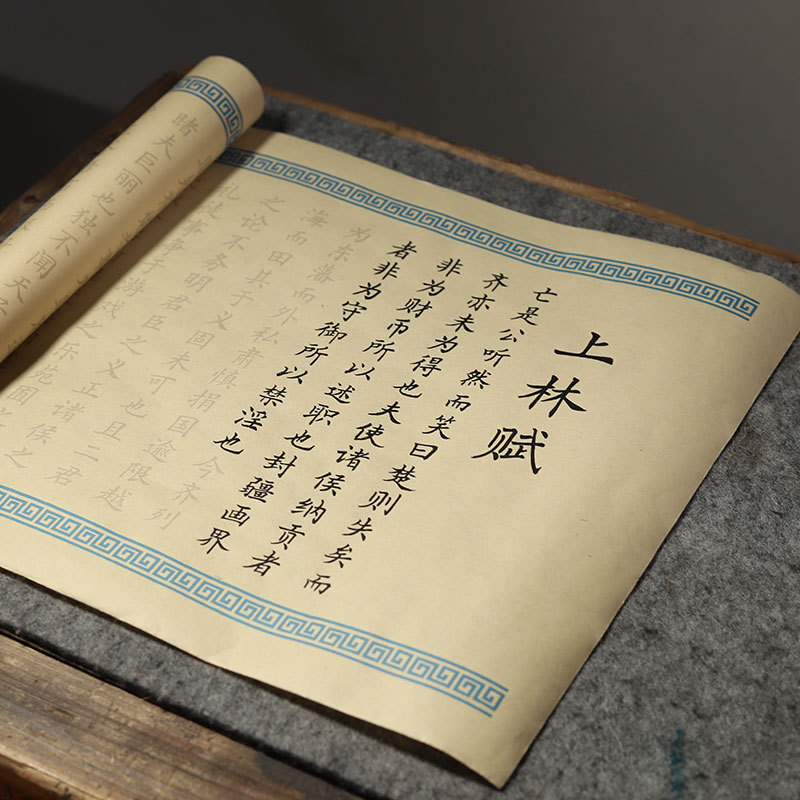 上林赋
亡是公听然而笑曰楚则失矣而
齐亦未为得也夫使诸侯纳贡者
非为财币所以述职也封疆画界
者非为守御所以禁淫也今齐列
为东藩而外私肃慎捐国逾限越
海而田其于义固未可也且二君
之论不务明君臣之义正诸侯之
礼徒事争于游戏之乐苑囿之
睹夫巨丽也独不闻天子